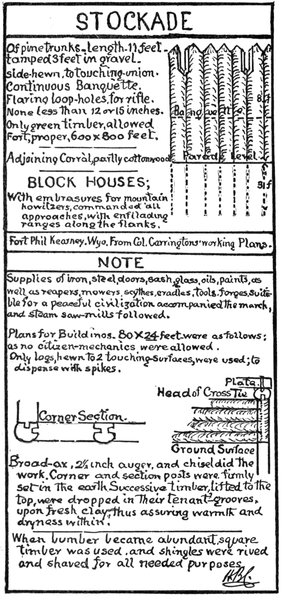 STOCKADE
Of pine trunks - length. 11 feet -
tamped 3 feet in gravel.
side-hewn, to touching-union.
Continuous Banquette.
Flaring loop-holes, for rifle.
None less than 12 or 15 inches.
Only green timber, allowed
Fort, proper, 600 x 800 feet.
Adjoining Corral, partly cottonwood
8 ft
Banquette
Parade Level
3 ft
BLOCK HOUSES;
With embrasures for mountain
howitzers, commanded all
approaches, with enfilading
ranges along the flanks.
Fort Phil Kearney, Wyo. From Col. Carringtons working Plans.
NOTE
Supplies of iron, steel, doors, sash, glass, oils, paints, as
well as reapers, mowers, scythes, cradles, tools, forges, suita-
ble for a peaceful civilization accompanied the march,
and steam saw-mills followed.
Plans for Buildings. 80 X 24 feet, were as follows;
as no citizen-mechanics were allowed.
Only logs, hewn to 2 touching-surfaces, were used; to
dispense with spikes.
Plate
Head of Cross Tie
Corner Section.
Ground Surface
Broad-ax, 2½ inch auger, and chisel did the
work, Corner and section posts were firmly
set in the earth. Successive timber, lifted to the
top, were dropped in their tenant-grooves,
upon fresh clay, thus assuring warmth and
dryness within.
When lumber became abundant, square
timber was used, and shingles were rived
and shaved for all needed purposes